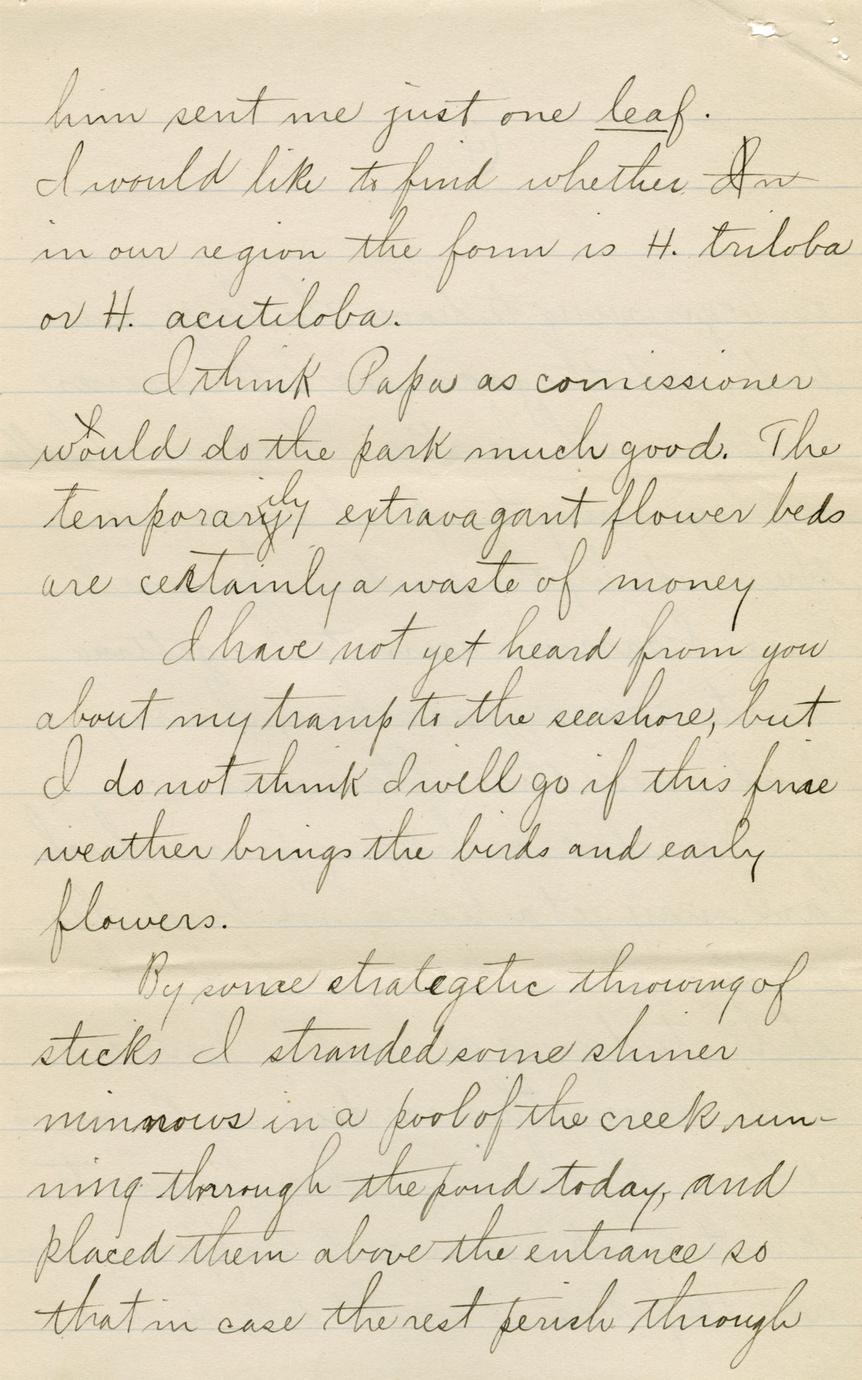 him sent me just one leaf.
I would like to find whether In
in our region the form is H. triloba
or H. acutiloba.
I think Papa as comissioner
would do the park much good. The
temporarily extravagant flower beds
are certainly a waste of money
I have not yet heard from you
about my tramp to the seashore, but
I do not think I will go if this fine
weather brings the birds and early
flowers.
By some strategetic throwing of
sticks I stranded some shiner
minnows in a pool of the creek run-
ning through the pond today, and
placed them above the entrance so
that in case the rest perish through